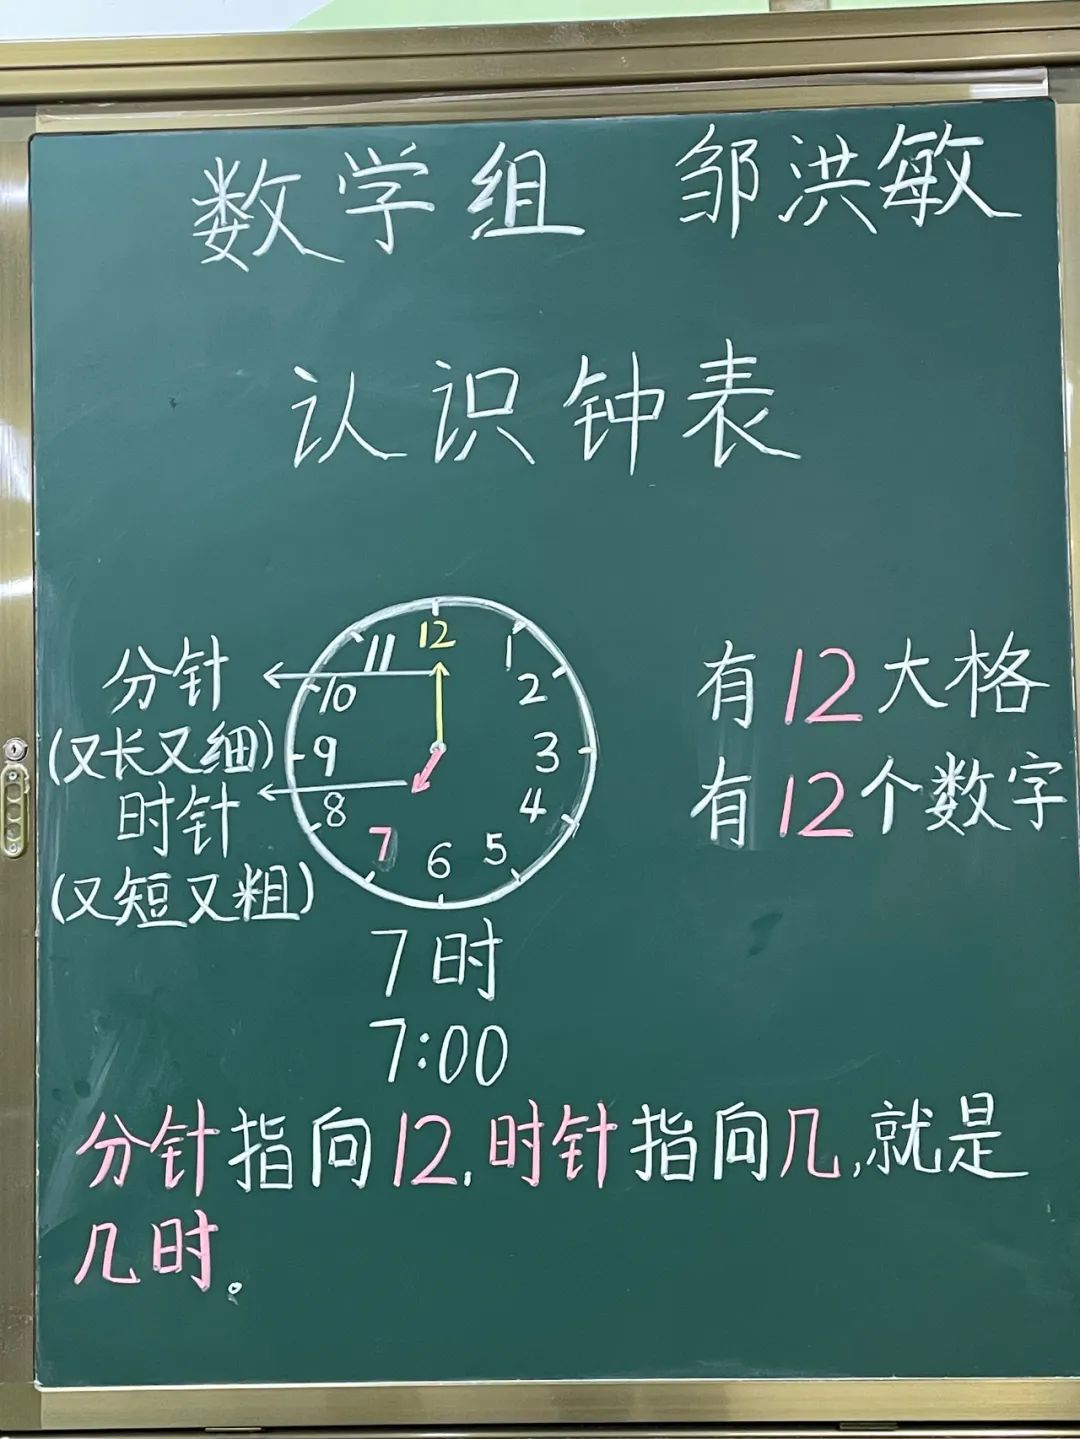 数学组 邹洪敏
认识钟表
分针
(又长又细)
时针
(又短又粗)
12
1
2
3
4
5
6
7
8
9
10
11
有12大格
有12个数字
7时
7:00
分针指向12,时针指向几,就是
几时。